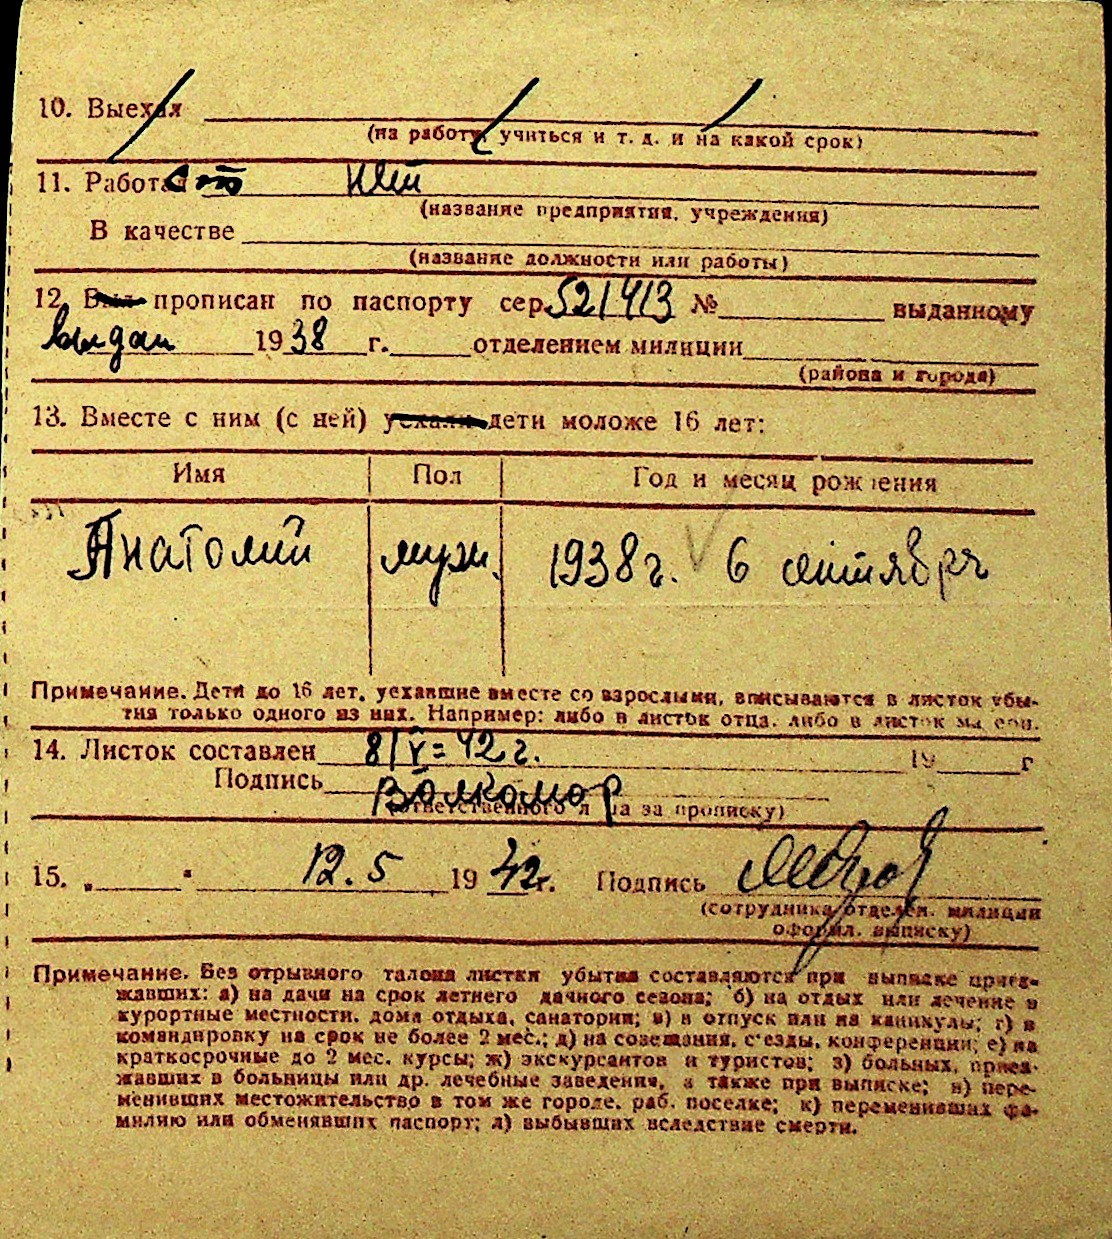 10. Выехал
(на работу, учиться и т. д. и на какой срок)
11. Работал нет
(название предприятия, учреждения)
В качестве
(название должности или работы)
12. Был прописан по паспорту сер. 521413 № выданному
выдан 1938 г. отделением милиции
(района и города)
13. Вместе с ним (с ней) уехали дети моложе 16 лет:
Имя Пол Год и месяц рождения
Анатолий муж. 1938 г. 6 сентября
Примечание. Дети до 16 лет, уехавшие вместе со взрослыми, вписываются в листок убы-
тия только одного из них. Например: либо в листок отца, либо в листок матери.
14. Листок составлен 8/V=42 г. 19 г
Подпись
(ответственного лица за прописку)
15. „ " 12.5 19 42 г. Подпись
(сотрудника отделен. милиции
оформл. выписку)
Примечание. Без отрывного талона листки убытия составляются при выписке приез-
жавших: а) на дачи на срок летнего дачного сезона; б) на отдых или лечение в
курортные местности, дома отдыха, санатории; в) в отпуск или на каникулы; г) в
командировку на срок не более 2 мес.; д) на совещания, с'езды, конференции; е) на
краткосрочные до 2 мес. курсы; ж) экскурсантов и туристов; з) больных, приез-
жавших в больницы или др. лечебные заведения, а также при выписке; и) пере-
менивших местожительство в том же городе, раб. поселке; к) переменивших фа-
милию или обменявших паспорт; л) выбывших вследствие смерти.